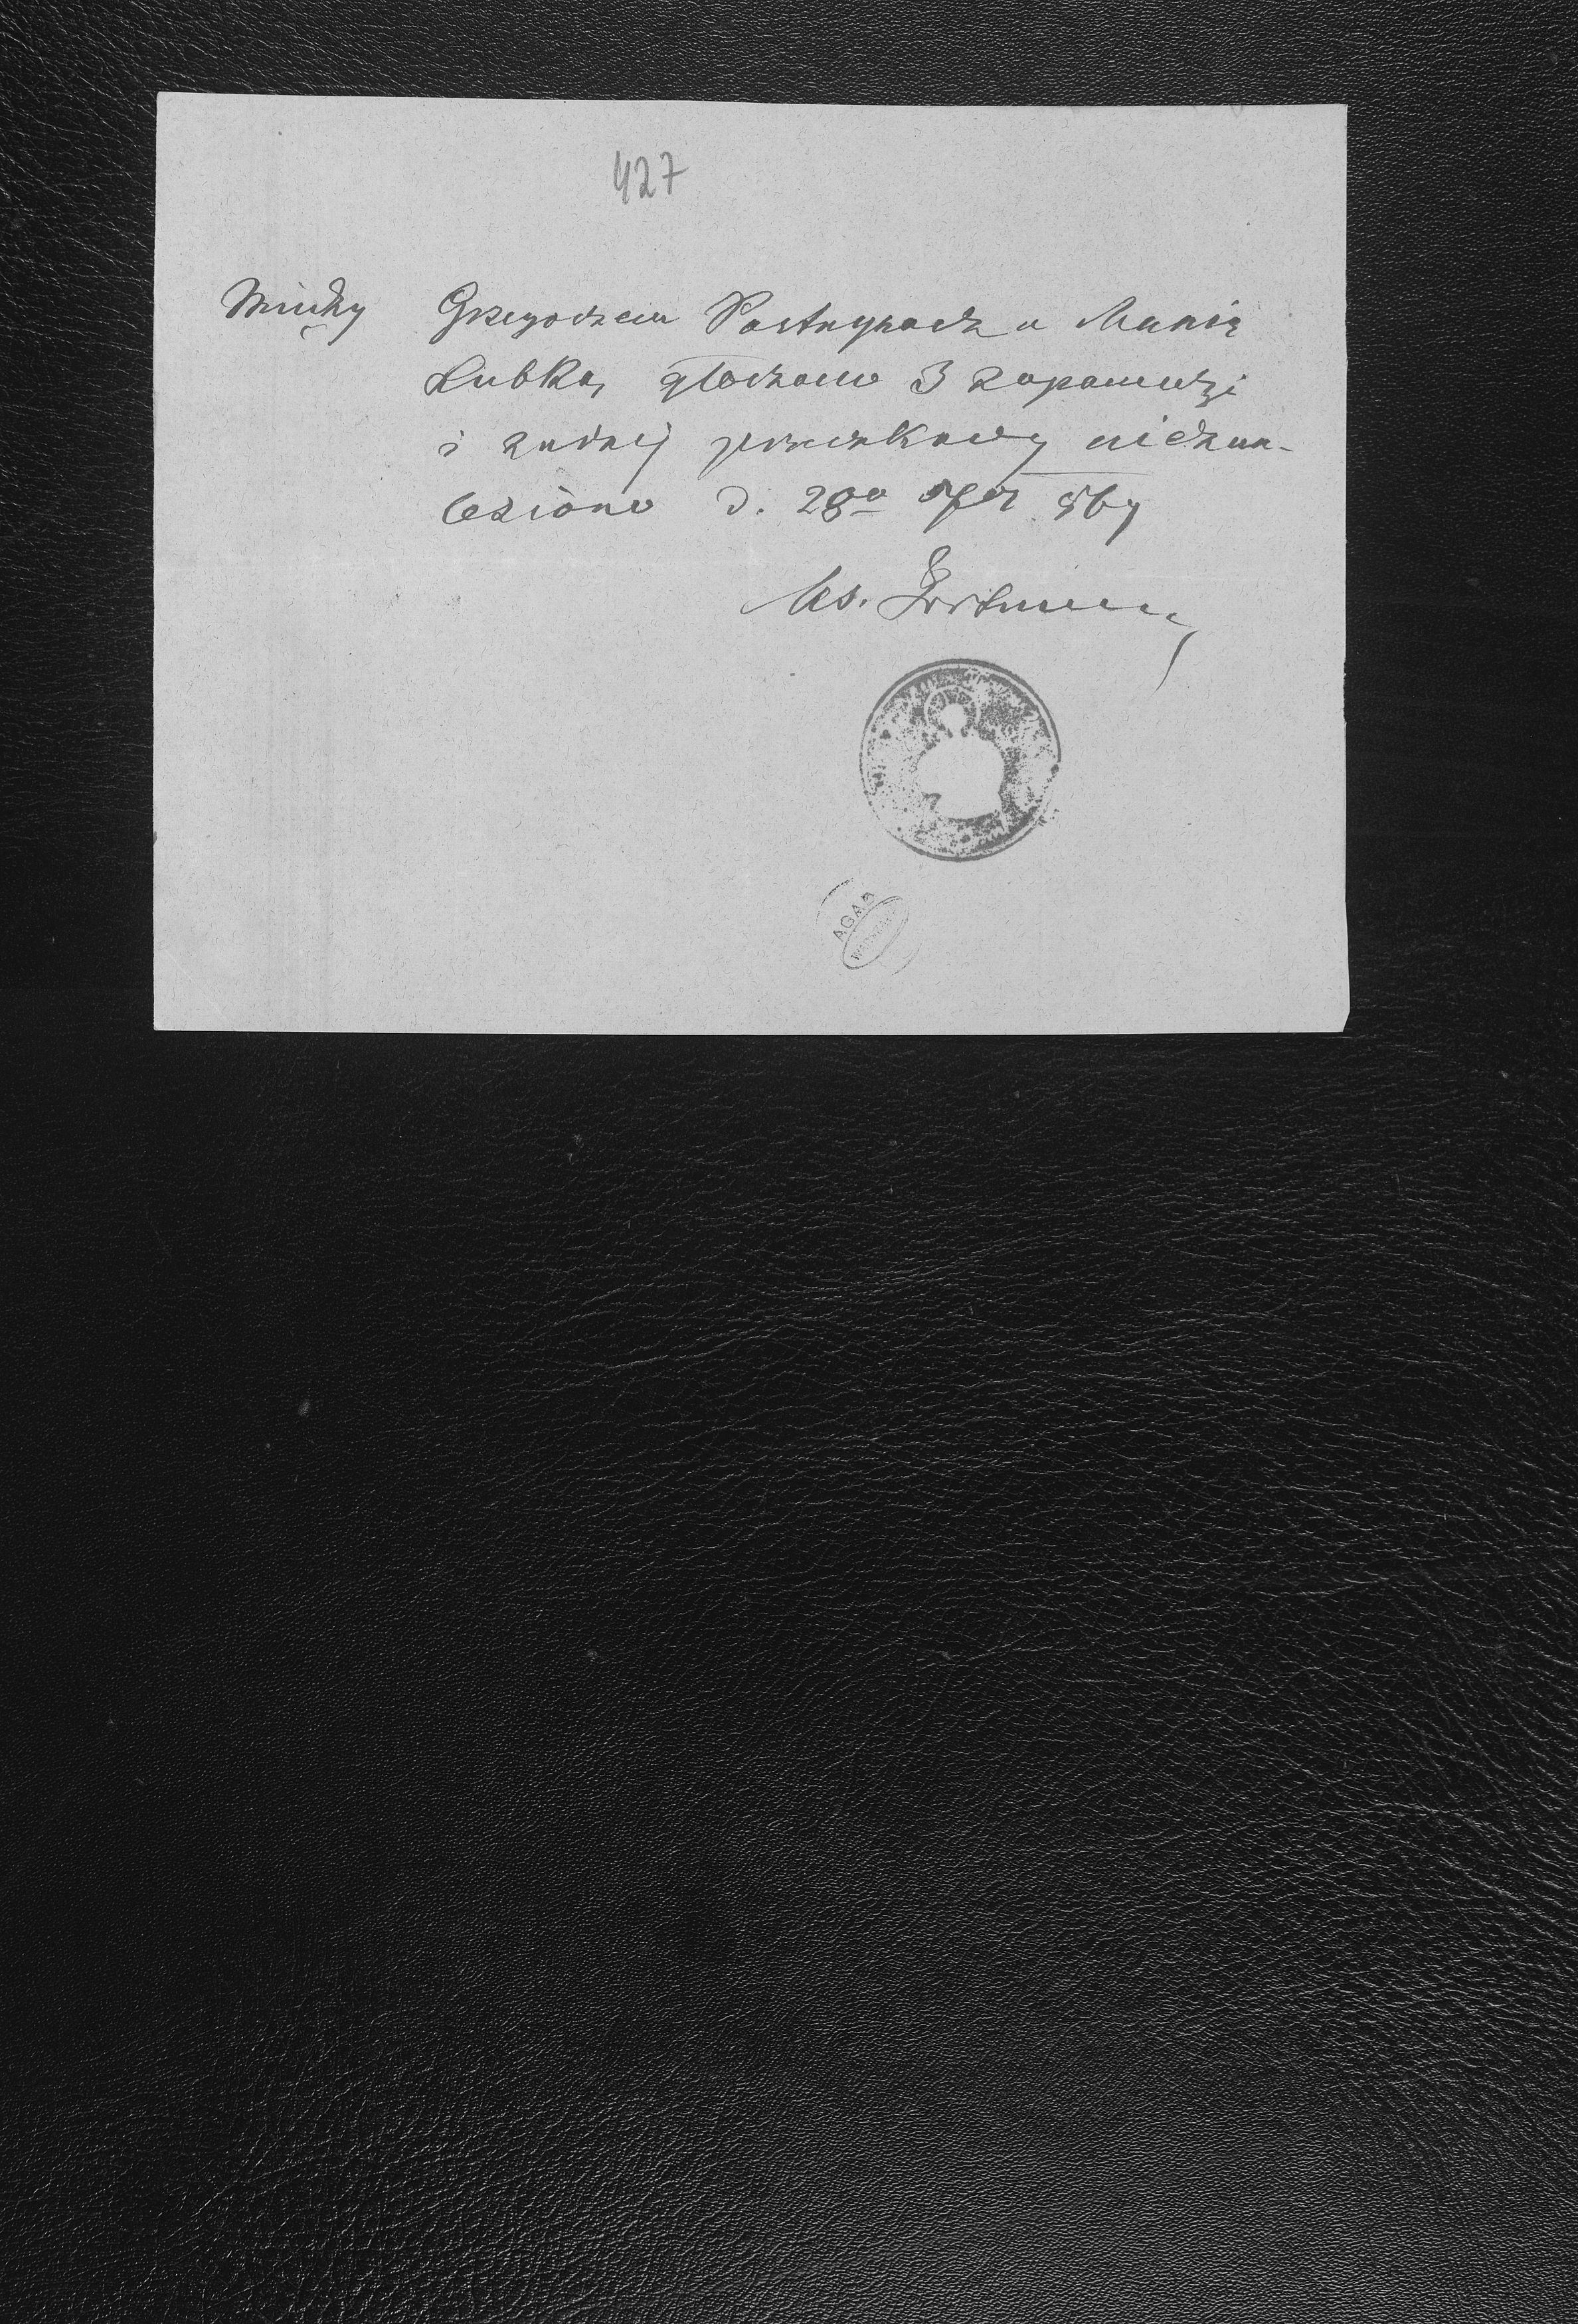 427
Między Grzegorzem Pastrynadz a Marią
Łubką głoszono 3 zapowiedzi
i żadnej przeszkody niezna-
leziono d. 28º
Ks.
AGAD